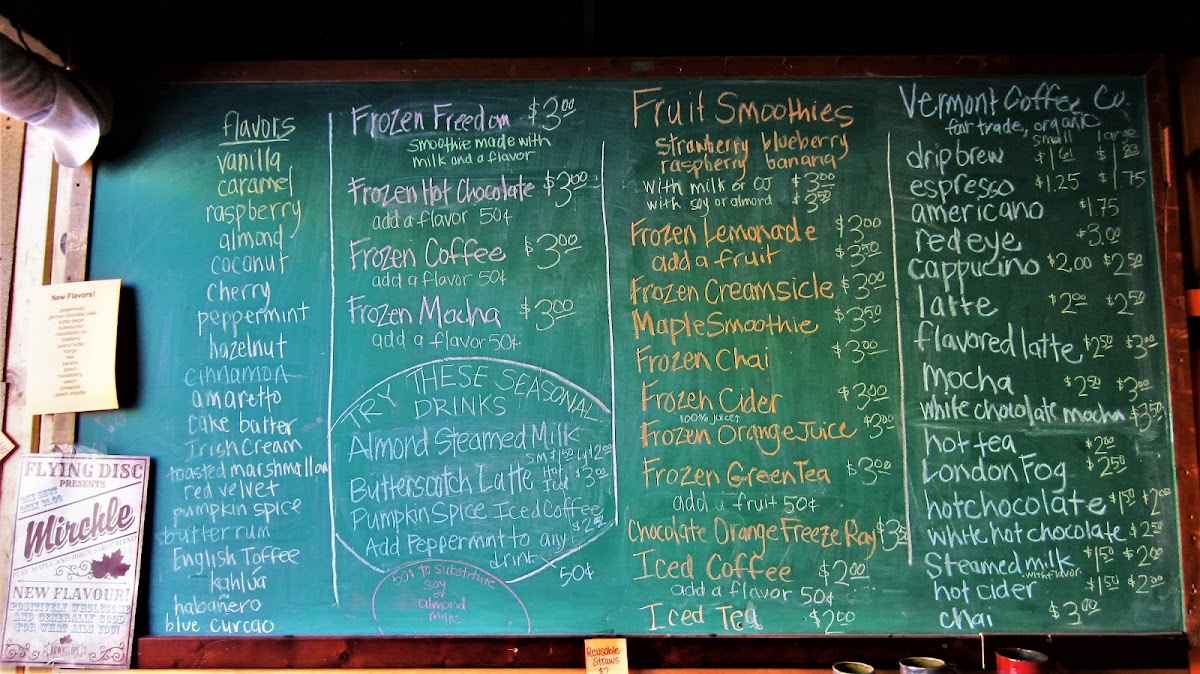 flavors
vanilla
caramel
raspberry
almond
coconut
cherry
peppermint
hazelnut
cinnamon
amaretto
cake batter
Irish Cream
toasted marshmallow
red velvet
pumpkin spice
butter rum
English Toffee
kahlua
habañero
blue curcao
Frozen Freedom $3.00
smoothie made with
milk and a flavor
Frozen Hot Chocolate $3.00
add a flavor 50¢
Frozen Coffee $3.00
add a flavor 50¢
Frozen Mocha $3.00
add a flavor 50¢
TRY THESE SEASONAL
DRINKS
Almond Steamed Milk
sm $1.50 Lg $2.00
Butterscotch Latte Hot Iced $3.00
Pumpkin Spice Iced Coffee
$2.50
Add Peppermint to any
drink 50¢
50¢ to substitute
soy
or
almond
milks
Fruit Smoothies
strawberry blueberry
raspberry banana
with milk or OJ $3.00
with soy or almond $3.50
Frozen Lemonade $3.00
add a fruit $3.50
Frozen Creamsicle $3.00
Maple Smoothie $3.50
Frozen Chai $3.00
Frozen Cider $3.00
100% juice!
Frozen Orange Juice $3.00
Frozen Green Tea $3.00
add a fruit 50¢
Chocolate Orange Freeze Ray $3.50
Iced Coffee $2.00
add a flavor 50¢
Iced Tea $2.00
Vermont Coffee Co.
fair trade, organic
small large
drip brew $1.61 $1.83
espresso $1.25 $1.75
americano $1.75
redeye $3.00
cappucino $2.00 $2.50
latte $2.00 $2.50
flavored latte $2.50 $3.00
mocha $2.50 $3.00
white chocolate mocha $3.50
hot tea $2.00
London Fog $2.50
hot chocolate $1.50 $2.00
white hot chocolate $2.50
Steamed milk $1.50 $2.00
with flavor
hot cider $1.50 $2.00
chai $3.00
New Flavors!
gingerbread
german chocolate cake
butter pecan
butterscotch
macadamia nut
blueberry
peanut butter
mango
kiwi
banana
guava
huckleberry
peach
pineapple
peach chipotle
FLYING DISC
PRESENTS
ONLY $1.00
Mirchle
PURE MAPLE AND BIRCH SYRUP BLEND
NEW FLAVOUR!
POSITIVELY WHOLESOME
AND GENERALLY GOOD
FOR WHAT AILS YOU!
Reusable
Straws
$2